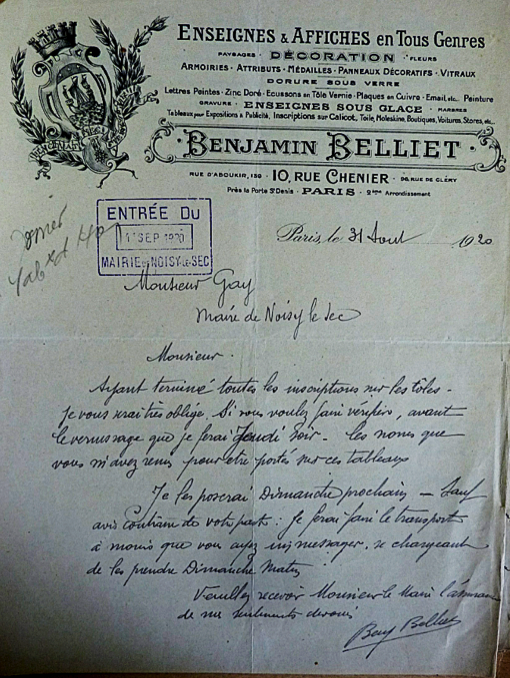 ENSEIGNES & AFFICHES en Tous Genres
PAYSAGES · DÉCORATION · FLEURS
ARMOIRIES · ATTRIBUTS · MÉDAILLES · PANNEAUX DÉCORATIFS · VITRAUX
DORURE SOUS VERRE
Lettres Peintes · Zinc Doré · Ecussons en Tôle Vernie · Plaques en Cuivre · Email, etc. Peinture
GRAVURE · ENSEIGNES SOUS GLACE · MARBRES
Tableaux pour Expositions & Publicité, Inscriptions sur Calicot, Toile, Moleskine, Boutiques, Voitures, Stores, etc.
BENJAMIN BELLIET
RUE D'ABOUKIR, 130 · 10, RUE CHENIER · 96, RUE DE CLÉRY
Près la Porte St Denis · PARIS · 2ème Arrondissement
ENTRÉE DU
1 SEP 1920
MAIRIE DE NOISY-LE-SEC
Paris, le 31 Aout 1920
Monsieur Gay
Maire de Noisy le Sec
Monsieur.
Ayant terminé toutes les inscriptions sur les tôles.
Je vous serai très obligé, Si vous voulez faire vérifier, avant
le vernissage que je ferai Jeudi Soir - les noms que
vous m'avez remis pour être portés sur ces tableaux
Je les poserai Dimanche prochain — Sauf
avis contraire de votre part : Je ferai faire le transport
à moins que vous ayez un messager, se chargeant
de les prendre Dimanche Matin
Veuillez recevoir Monsieur le Maire l'assurance
de mes sentiments dévoués
Benj Belliet